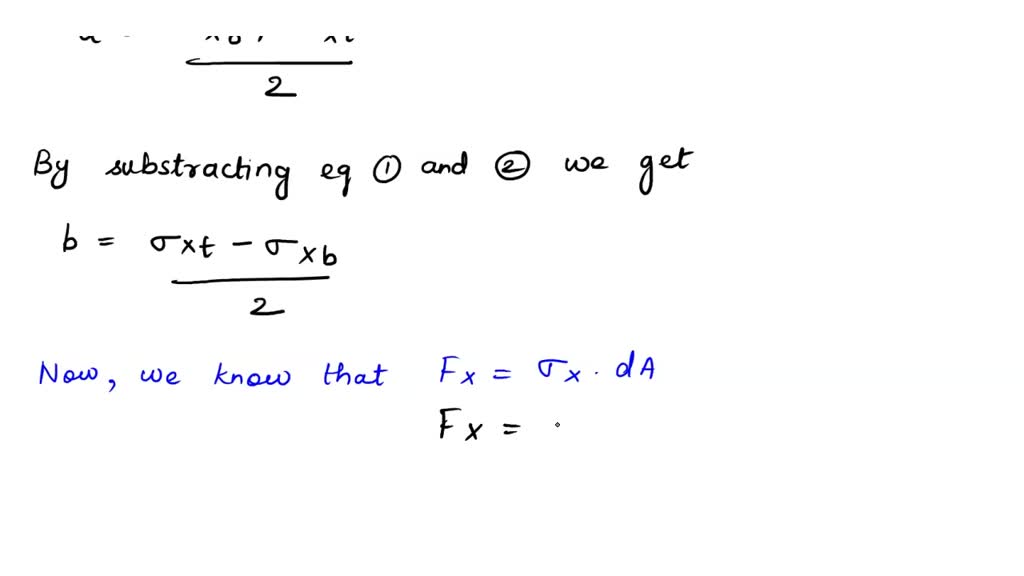 2
By substracting eq ① and ② we get
b = σxt - σxb
2
Now, we know that Fx = σx . dA
Fx =